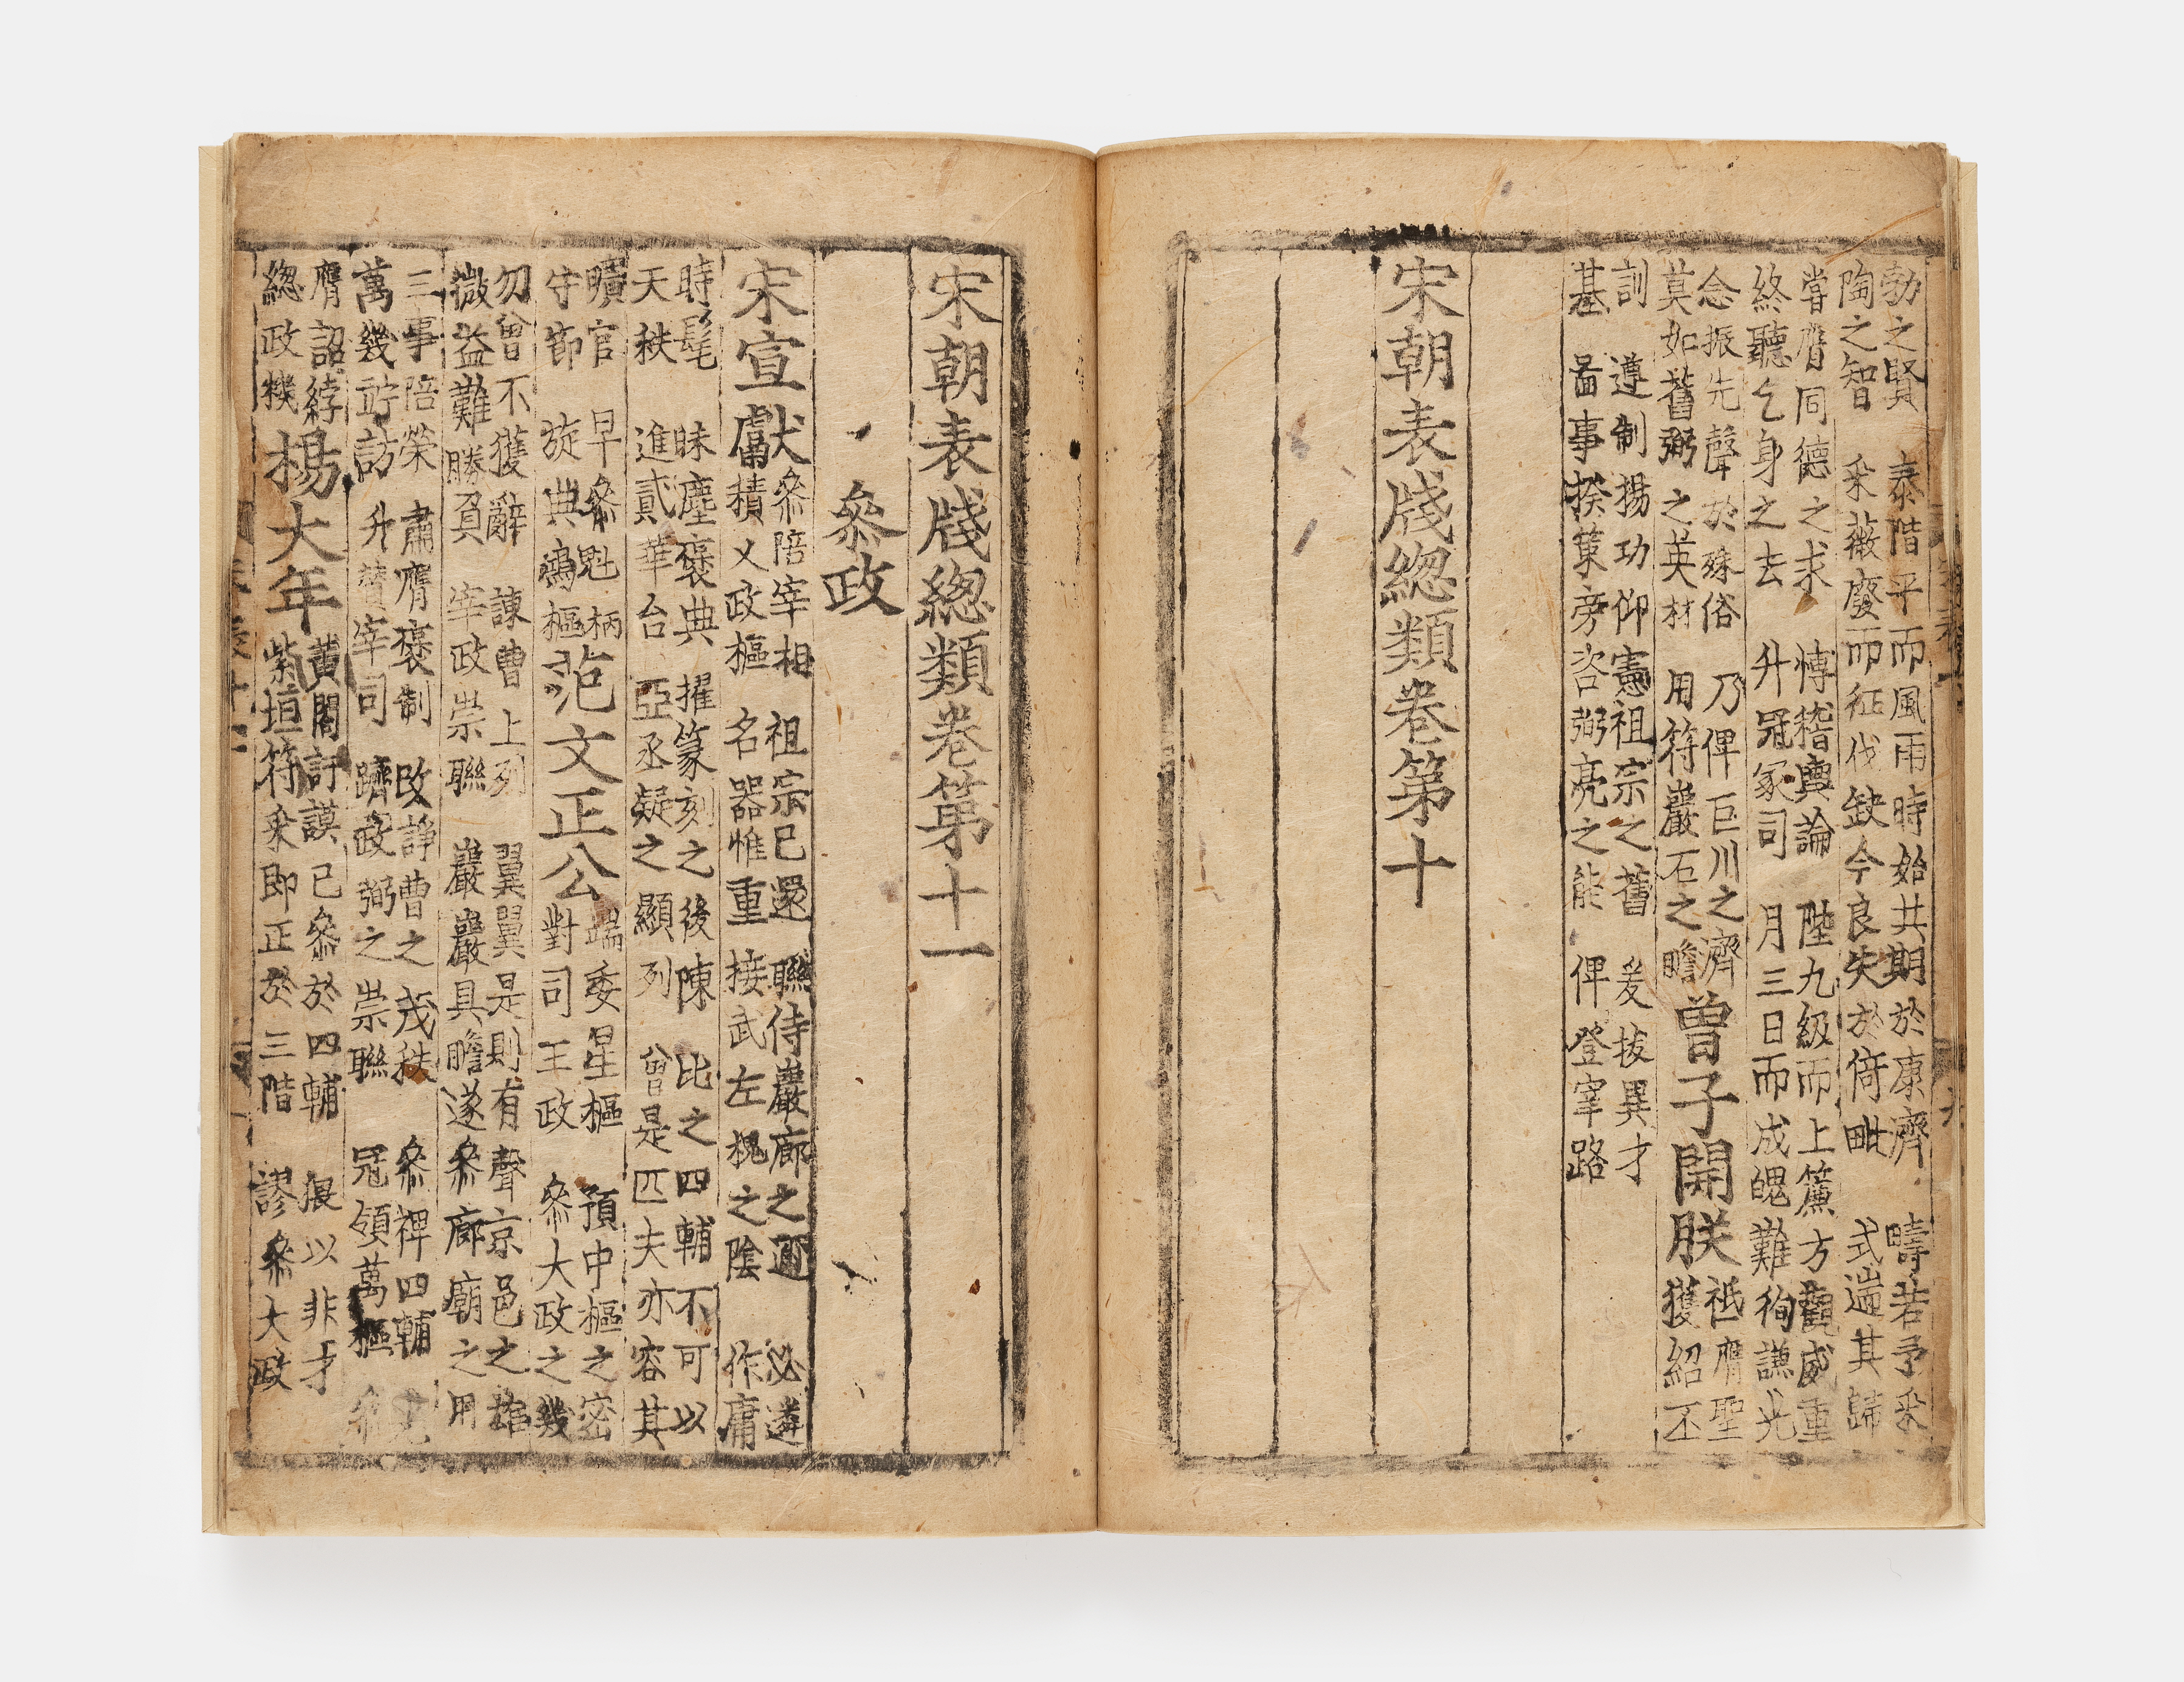 勃之賢　泰階平而風雨時始共期於康濟　疇若予采
陶之智　采薇廢而征伐缺今良失於倚毗　式遄其歸
嘗膺同德之求　愽稽輿論　陛九級而上簾方觀威重
終聽乞身之去　升冠冢司　月三日而成魄難徇謙光
念振先聲於殊俗　乃俾巨川之濟
莫如舊弼之英材　用符巖石之瞻
曾子開朕
祗膺聖
獲紹丕
訓　遵制揚功仰憲祖宗之舊　爰拔異才
基　啚事揆策旁咨弼亮之能　俾登宰路
宋朝表牋緫類卷第十
宋朝表牋緫類卷第十一
叅政
宋宣獻
叅陪宰相　祖宗已還　聯侍巖廊之邇　必遴
積乂政樞　名器惟重　接武左槐之陰　作庸
時髦　昧塵褒典　擢篆刻之後陳　比之四輔不可以
天秩　進貳華台　亞丞疑之顯列　曾是匹夫亦容其
曠官　早叅魁柄
守節　旋典鴻樞
范文正公
端委星樞　預中樞之密
對司王政　叅大政之幾
勿曾不獲辭　諫曹上列　翼翼是則有聲京邑之雄
微益難勝負　宰政崇聯　巖巖具瞻遂叅廊廟之用
三事陪榮　肅膺褒制　改諍曹之茂秩　叅裨四輔
萬幾竚訪　升賛宰司　躋政弼之崇聯　冠領萬樞
膺詔綍
緫政機
楊大年
黃閣訏謨已叅於四輔　猥以非才
紫垣符采即正於三階　謬叅大政